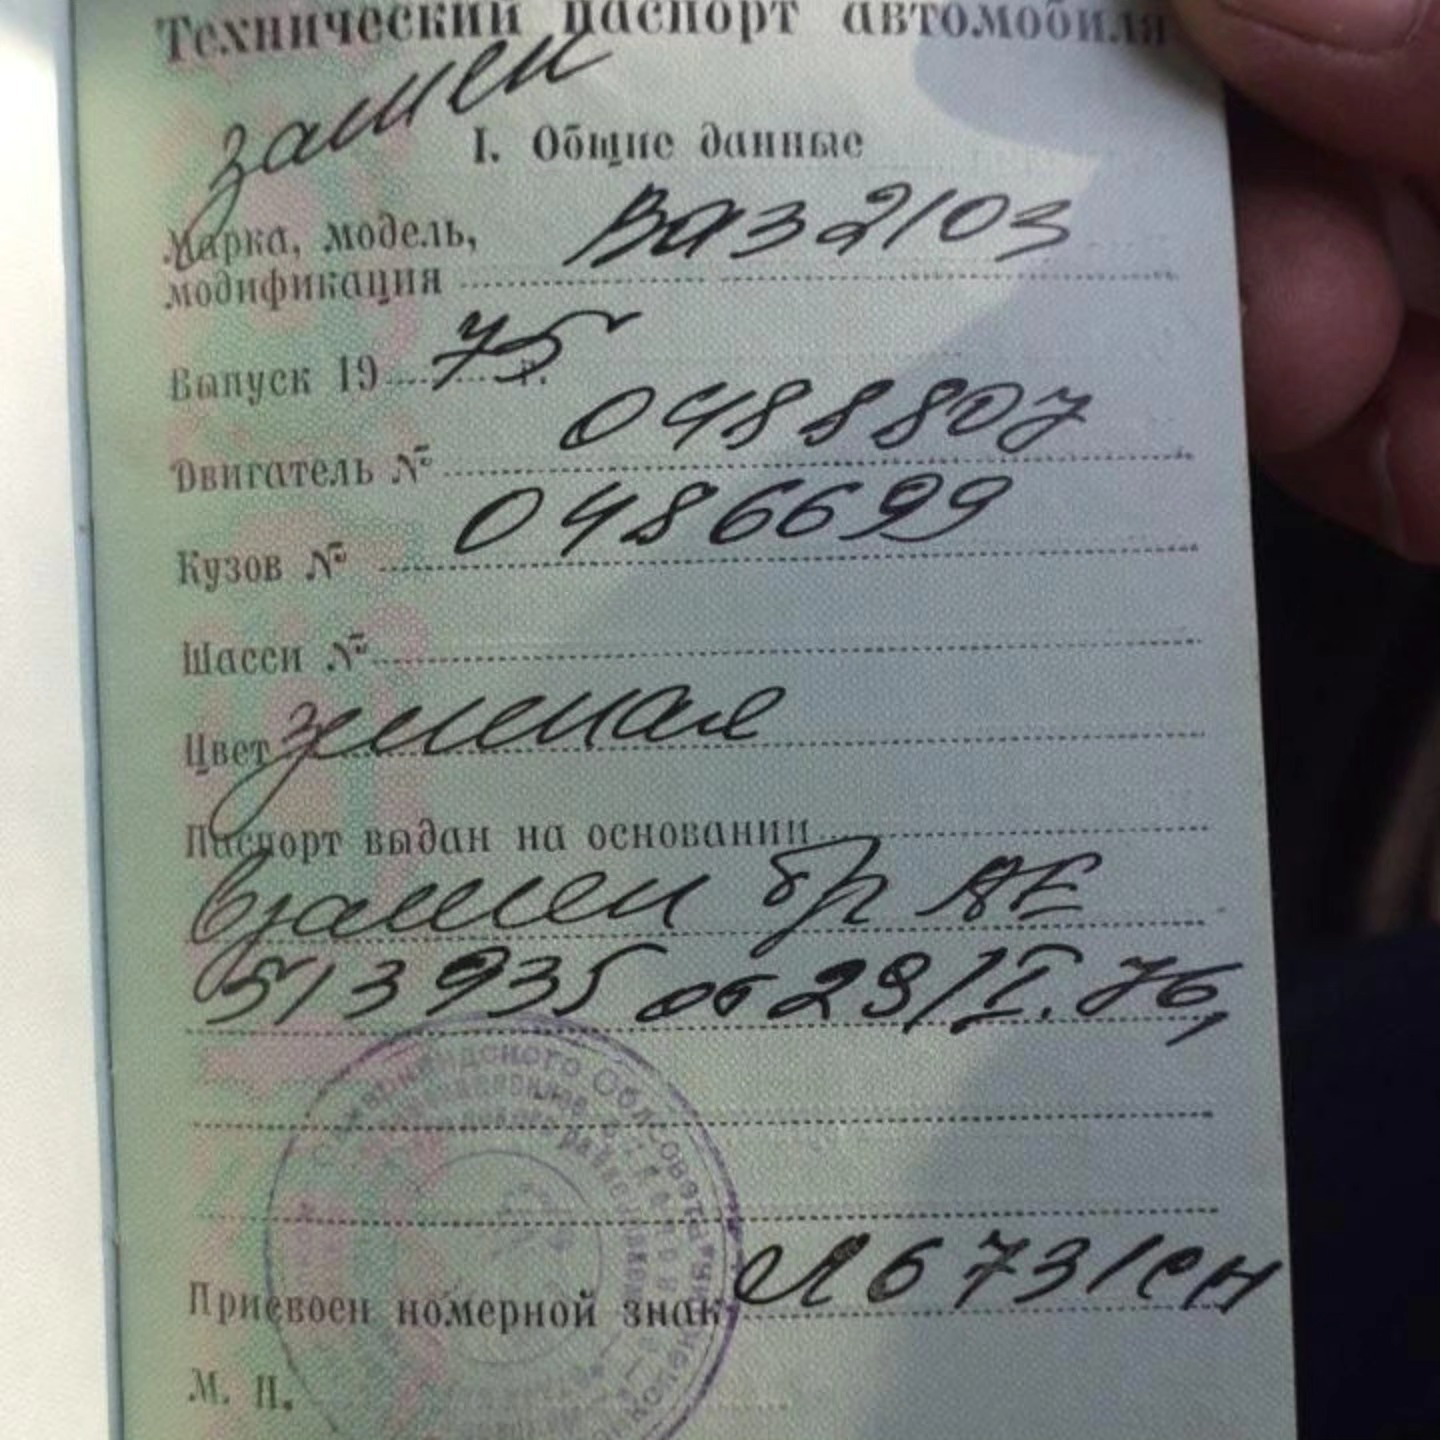 Технический паспорт автомобиля
замен
I. Общие данные
Марка, модель, Ваз 2103
модификация
Выпуск 19 75 г.
Двигатель № 0488807
Кузов № 0486699
Шасси №
Цвет зеленая
Паспорт выдан на основании
взамен АЕ
513935 от 29/II.76,
Присвоен номерной знак 6731
М. П.